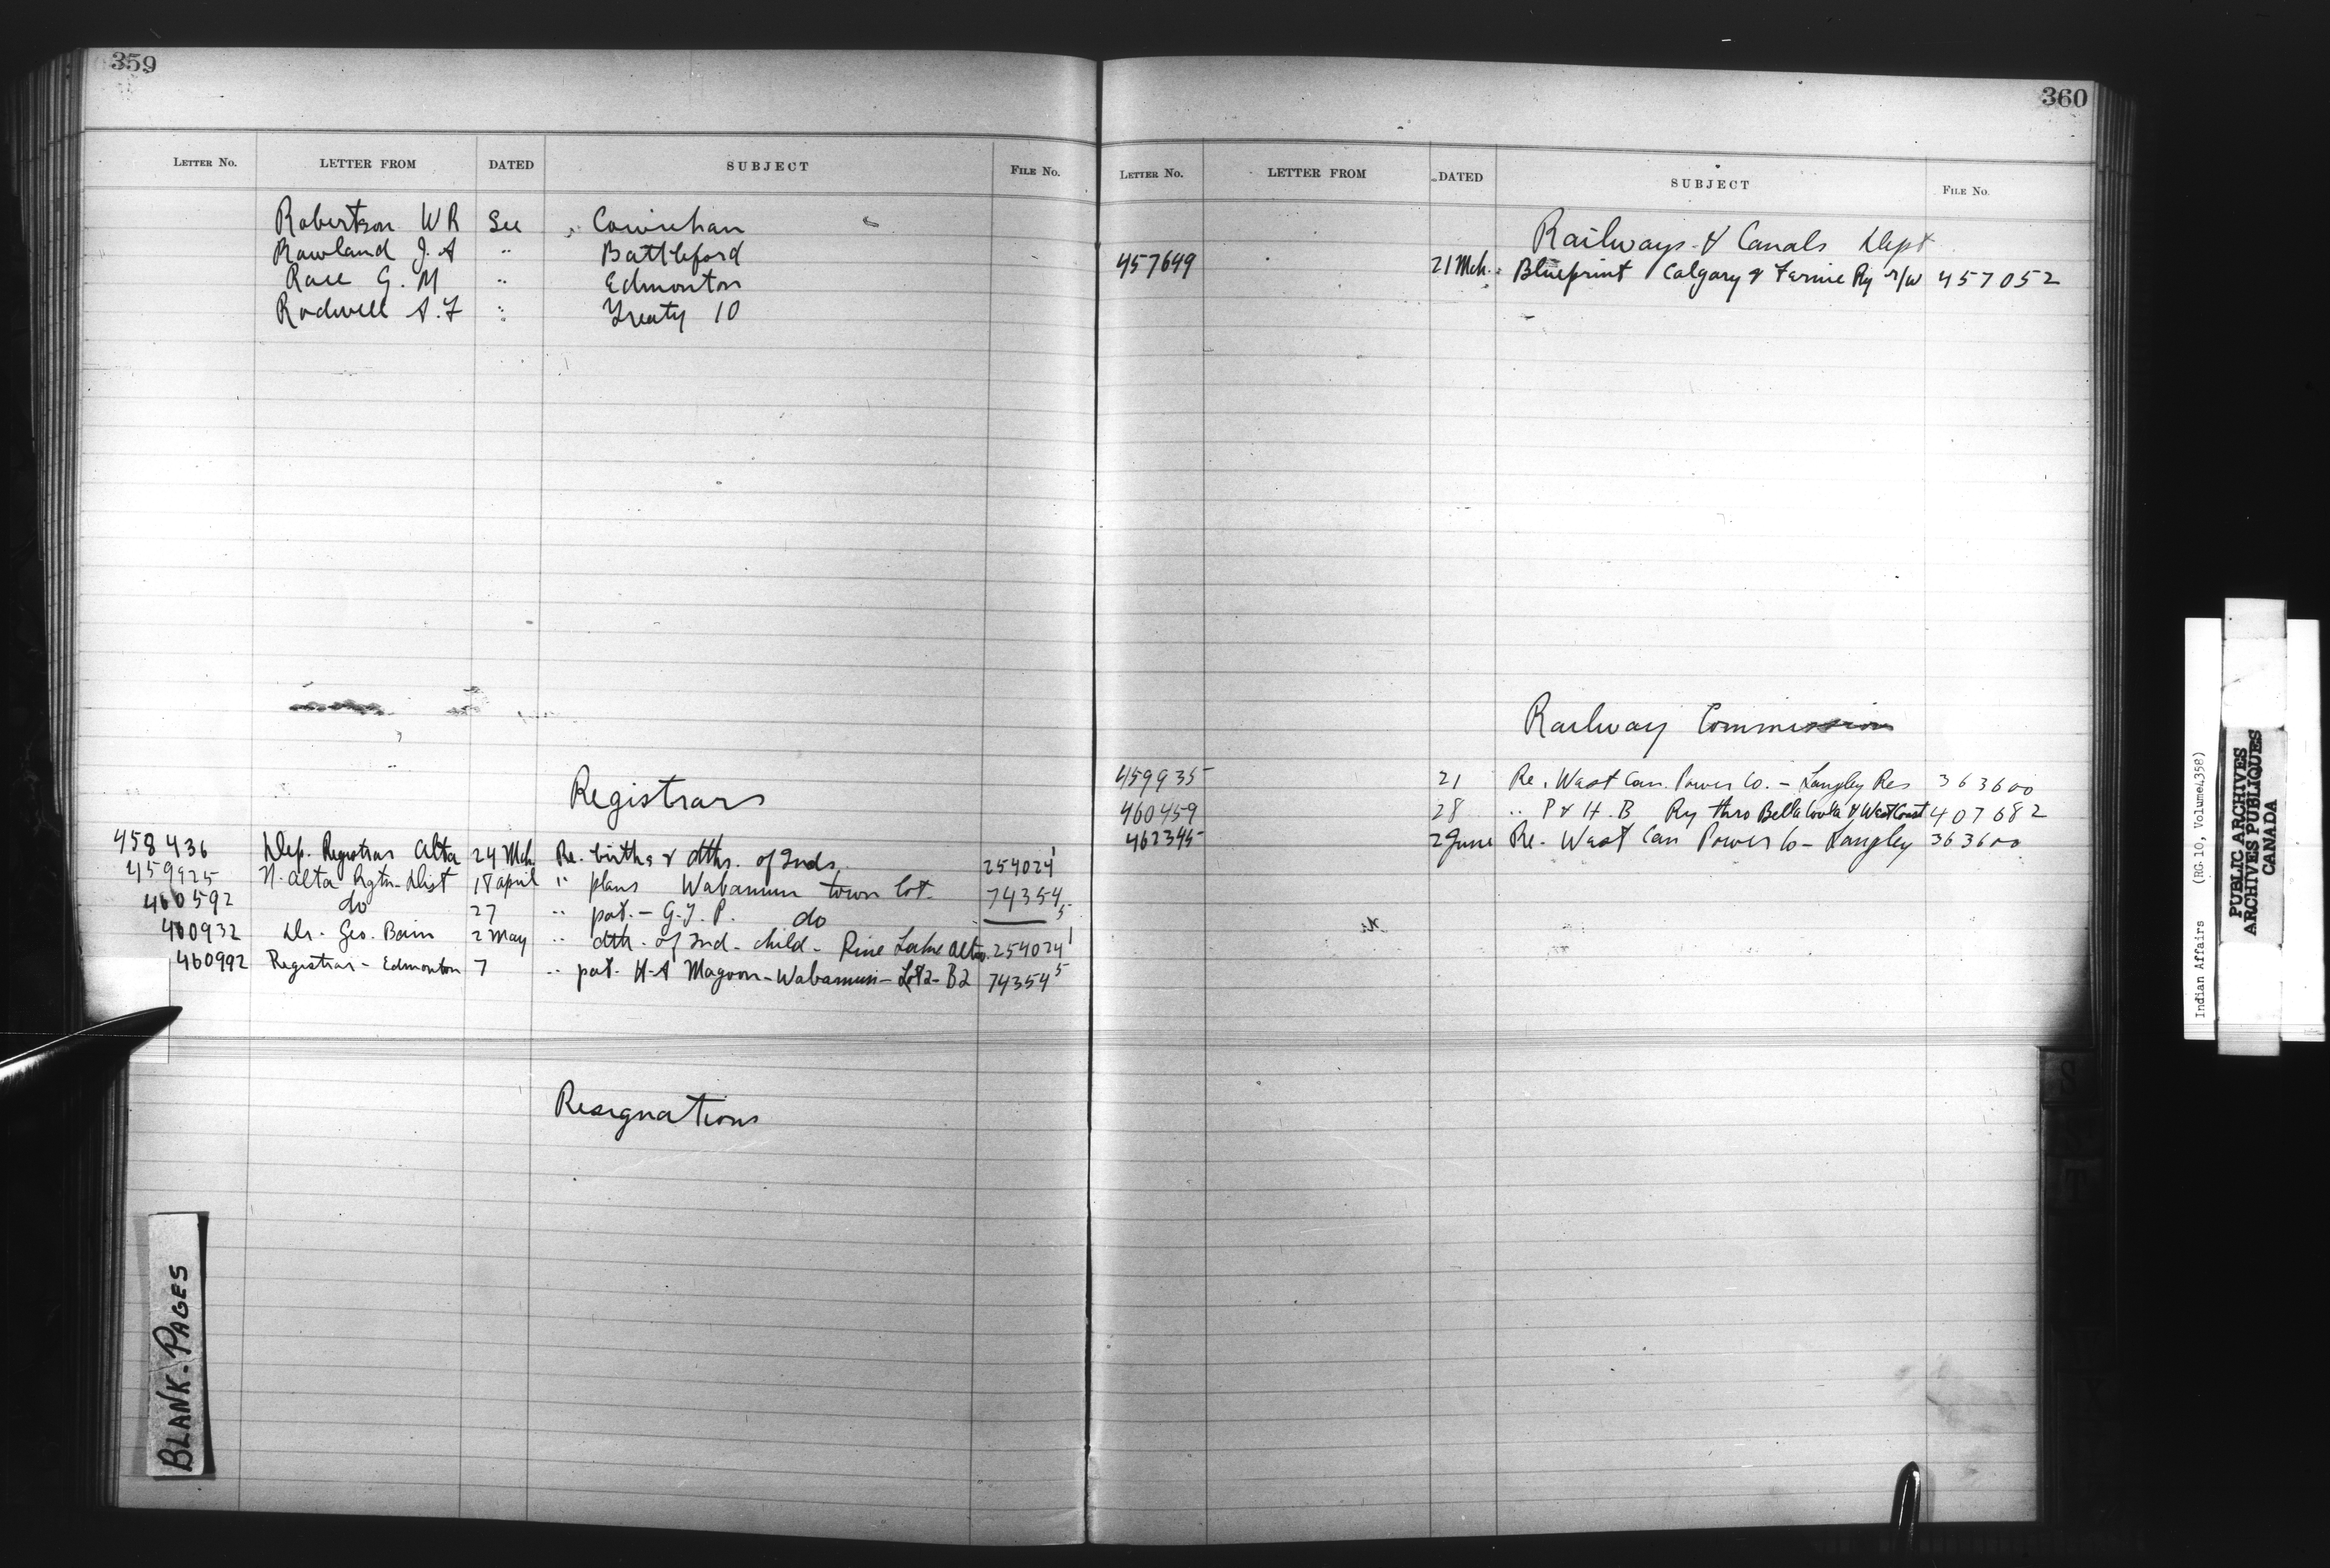 359
LETTER NO. LETTER FROM DATED SUBJECT FILE NO.
Robertson W R See Cowichan
Rowland J. A " Battleford
Race G. M " Edmonton
Rodwell A. F " Treaty 10
Registrars
458436 Dep. Registrar Alta 24 Mch. Re. births & dths. of Inds. 254024 1
459925 N. Alta Rgtn. Dist 18 april " plans Wabamum town lot. 74354 5
460592 do 27 " pat. - G. T. P. do
460932 Dr. Geo. Bain 2 May " dth. of Ind. child - Pine Lake Alta. 254024 1
460992 Registrar - Edmonton 7 " pat. H-A Magoon - Wabamum - Lot 2 - B2 74354 5
Resignations
BLANK-PAGES
360
LETTER NO. LETTER FROM DATED SUBJECT FILE NO.
Railways & Canals Dept
457649 21 Mch. Blueprint Calgary & Fernie Ry r/w 457052
Railway Commission
459935 21 Re. West Can. Power Co. - Langley Res 363600
460459 28 " P & H. B Ry thro Bella Coola & West Coast 407682
462345 2 June Re. West Can Power Co - Langley 363600
Indian Affairs (RG 10, Volume 4358)
PUBLIC ARCHIVES
ARCHIVES PUBLIQUES
CANADA